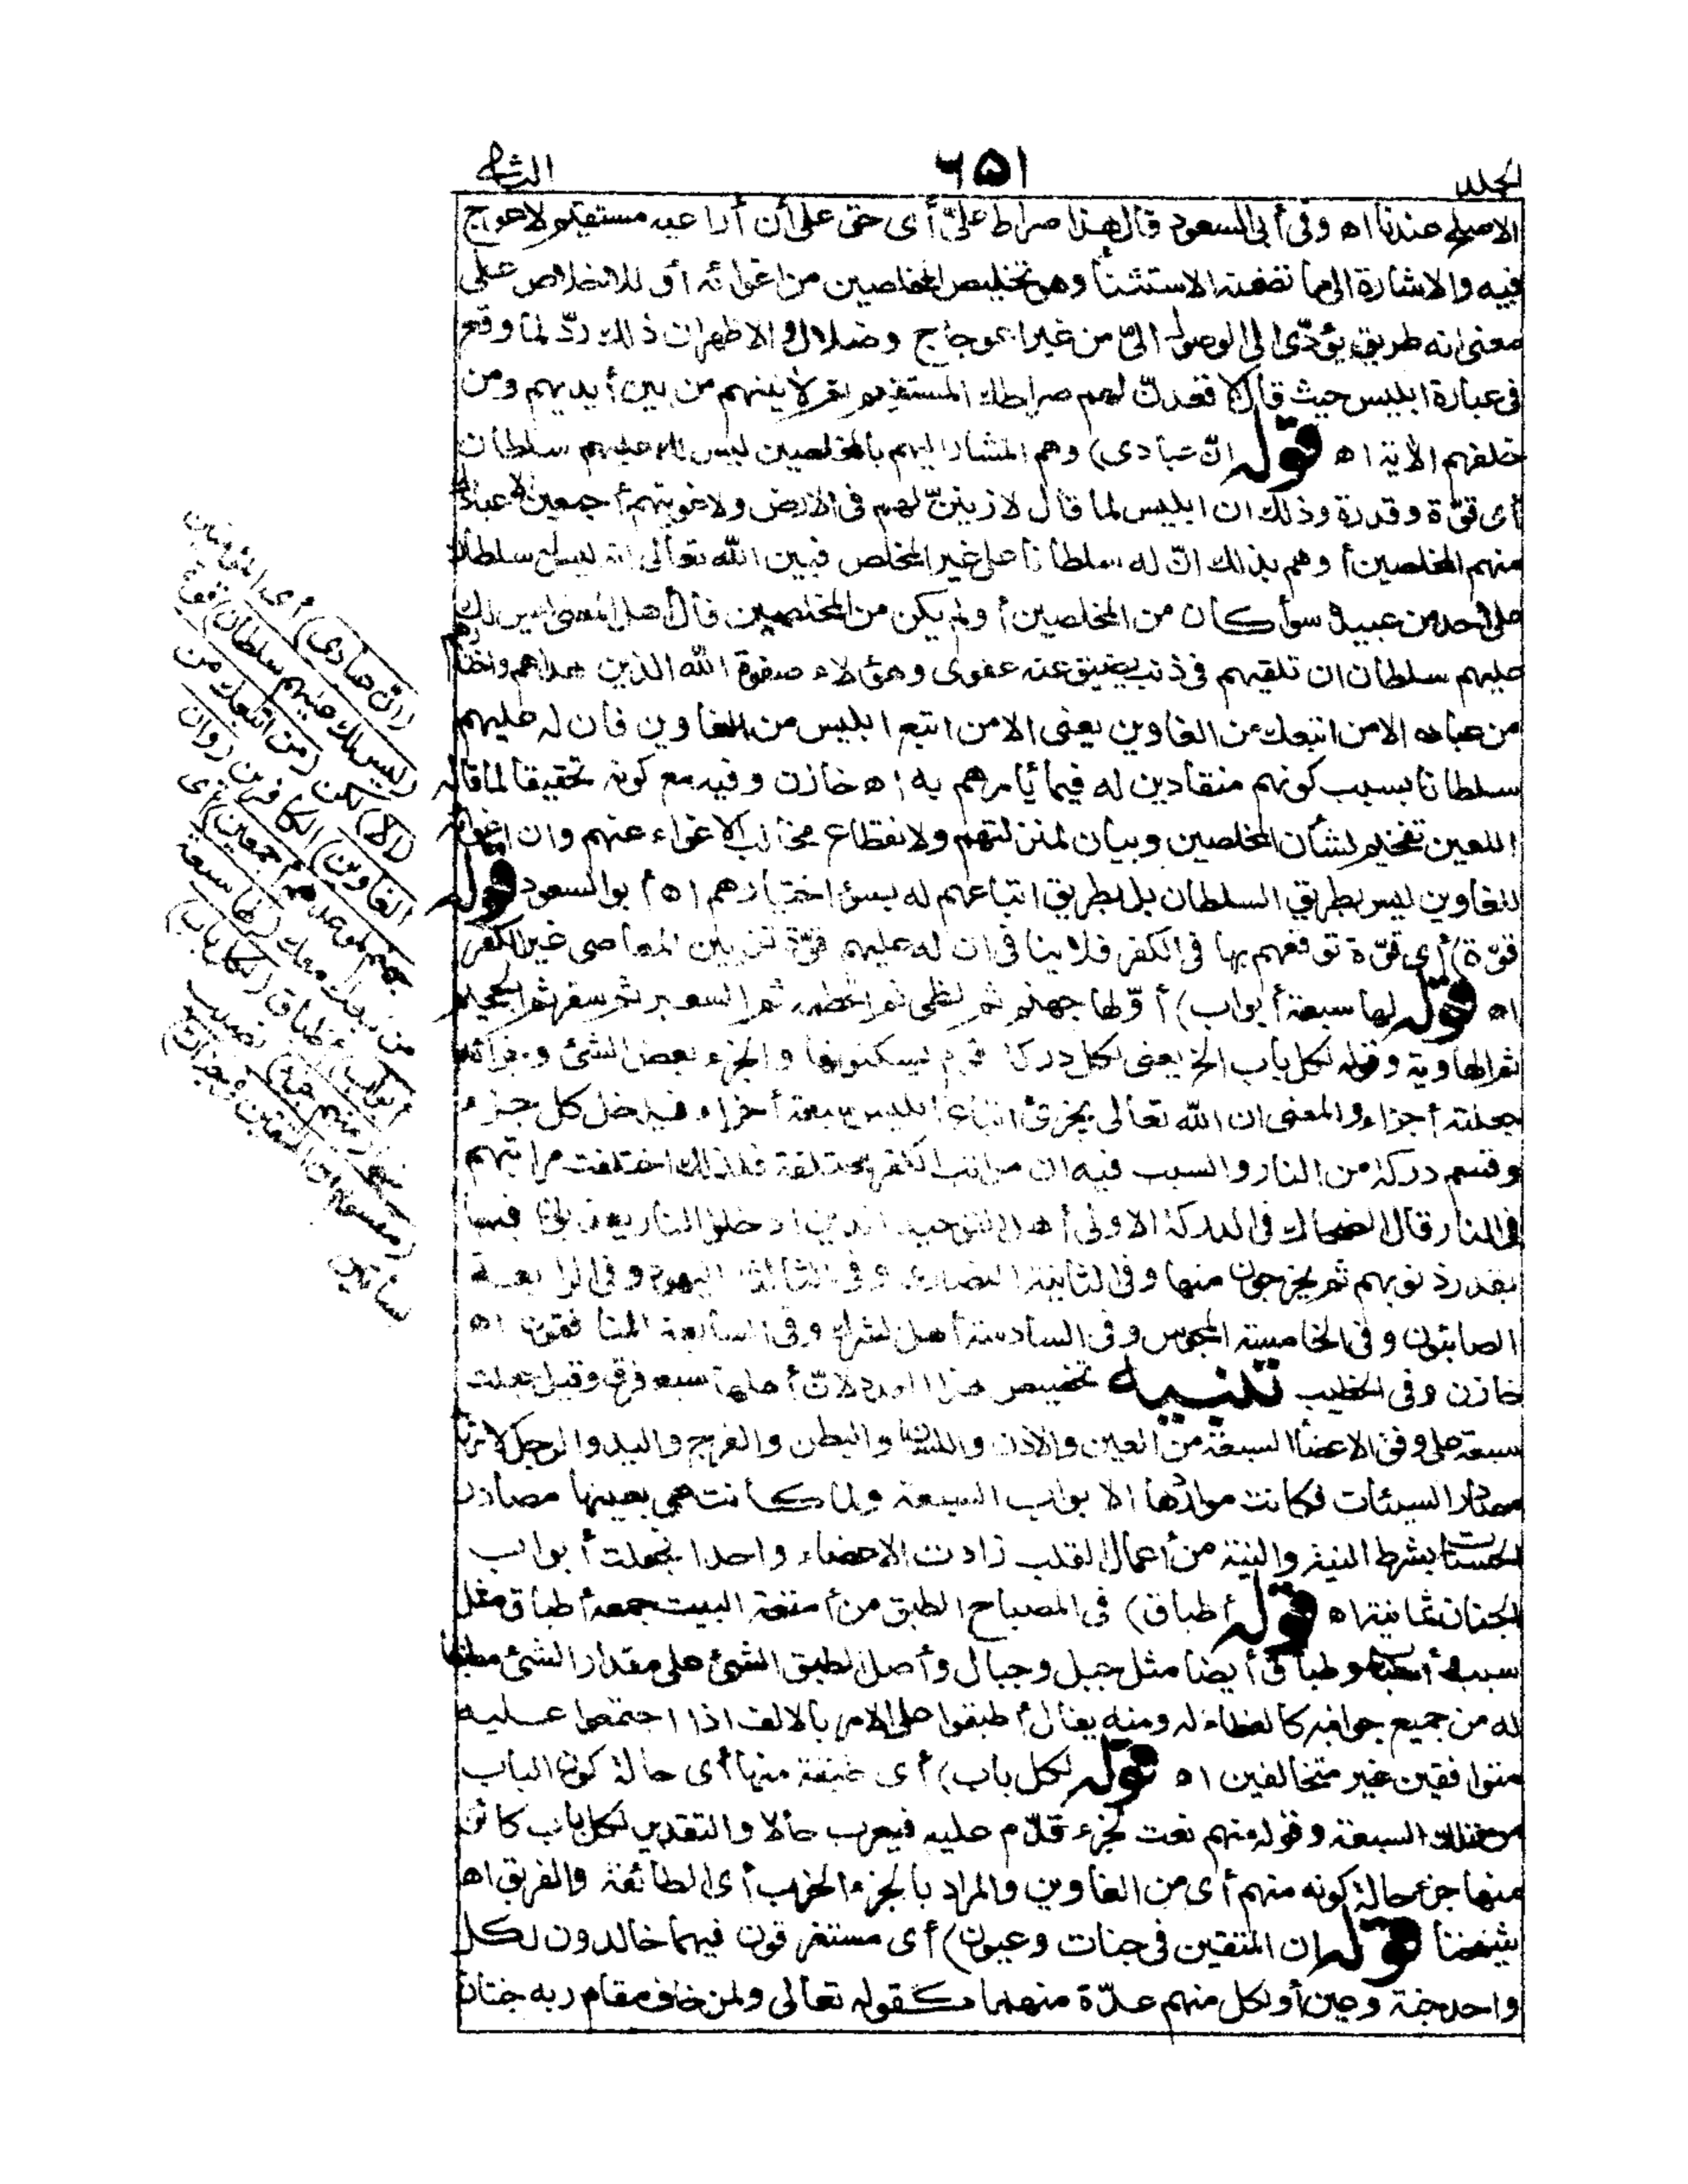 الجلد ٦٥١ الثانى
الاصلح عندنا اه وفى أبى السعود قال هذا صراط علىّ أى حق على أن أراعيه مستقيم لا عوج
فيه والاشارة الى ما تضمنه الاستثناء وهو تخليص المخلصين من اغوائه أو للاخلاص على
معنى انه طريق يؤدّى الى الوصول الىّ من غير اعوجاج وضلال والاظهر ان ذلك ردّ لما وقع
فى عبارة ابليس حيث قال لاقعدنّ لهم صراطك المستقيم ثم لآتينهم من بين أيديهم ومن
خلفهم الآية اه قوله انّ عبادى) وهم المشار اليهم بالمخلصين ليس لك عليهم سلطان
أى قوّة وقدرة وذلك ان ابليس لما قال لازيننّ لهم فى الارض ولاغوينهم أجمعين الا عبادك
منهم المخلصين أوهم بذلك انّ له سلطانا على غير المخلص فبين الله تعالى انه ليس له سلطان
على أحد من عبيده سوأ كان من المخلصين أو لم يكن من المخلصين قال أهل المعانى ليس لك
عليهم سلطان ان تلقيهم فى ذنب يضيق عنه عفوى وهؤلاء صفوة الله الذين هداهم واختارهم
من عباده الا من اتبعك من الغاوين يعنى الا من اتبع ابليس من الغاوين فان له عليهم
سلطانا بسبب كونهم منقادين له فيما يأمرهم به اه خازن وفيه مع كونه تحقيقا لما قاله
اللعين تفخيم لشأن المخلصين وبيان لمنزلتهم ولانقطاع مخالب الاغواء عنهم وان اغوائه
للغاوين ليس بطريق السلطان بل بطريق اتباعهم له بسوء اختيارهم اه أبو السعود قوله
قوّة) أى قوّة توقعهم بها فى الكفر فلا ينافى ان له عليهم قوّة تزيين المعاصى غير الكفر
اه قوله لها سبعة أبواب) أوّلها جهنم ثم لظى ثم الحطمه ثم السعير ثم سقر ثم الجحيم
ثم الهاوية وقوله لكل باب الخ يعنى لكل دركة قوم يسكنونها والجزء بعض الشئ وجزأته
جعلته أجزاء والمعنى ان الله تعالى يجزئ اتباع ابليس سبعة أجزاء فيدخل كل جزء
وقسم دركة من النار والسبب فيه ان مراتب الكفر مختلفة فلذلك اختلفت مراتبهم
فى النار قال الضحاك فى الدركة الاولى أهل التوحيد الذين ادخلوا النار يعذبون فيها
بقدر ذنوبهم ثم يخرجون منها وفى الثانية النصارى وفى الثالثة اليهود وفى الرابعة
الصابئون وفى الخامسة المجوس وفى السادسة أهل الشرك وفى السابعة المنافقون اه
خازن وفى الخطيب تنبيه تخصيص هذا العدد لانّ أهلها سبع فرق وقيل جعلت
سبعة على وفق الاعضاء السبعة من العين والاذن واللسان والبطن والفرج واليد والرجل لانها
مصادر السيئات فكانت مواردها الابواب السبعة ولما كانت هى بعينها مصادر
الحسنات بشرط النية والنية من أعمال القلب زادت الاعضاء واحدا فجعلت أبواب
الجنان ثمانية اه قوله أطباق) فى المصباح الطبق من أمتعة البيت جمعه أطباق مثل
سبب أسباب وطباق أيضا مثل جبل وجبال وأصل الطبق الشئ على مقدار الشئ مطبقا
له من جميع جوانبه كالغطاء له ومنه يقال أطبقوا على الامر بالالف اذا اجتمعوا عليه
متوافقين غير متخالفين اه قوله لكل باب) أى طبقة منها أى حالة كون الباب
من تلك السبعة وقوله منهم نعت لجزء قدّم عليه فيعرب حالا والتقدير لكل باب كائن
منها جزء حالة كونه منهم أى من الغاوين والمراد بالجزء الحزب أى الطائفة والفريق اه
شيخنا قوله ان المتقين فى جنات وعيون) أى مستقرّون فيهما خالدون لكل
واحد جنة وعين أو لكل منهم عدّة منهما كقوله تعالى ولمن خاف مقام ربه جنتان
(ان عبادى) أى المؤمنين
(ليس لك عليهم سلطان) قوّة
(الا) لكن (من اتبعك من
الغاوين) الكافرين (وان
جهنم لموعدهم أجمعين) أى
من تبعك معك (لها سبعة
أبواب) أطباق (لكل باب)
منها (منهم جزء) نصيب
(مقسوم ان المتقين فى جنات)
بساتين